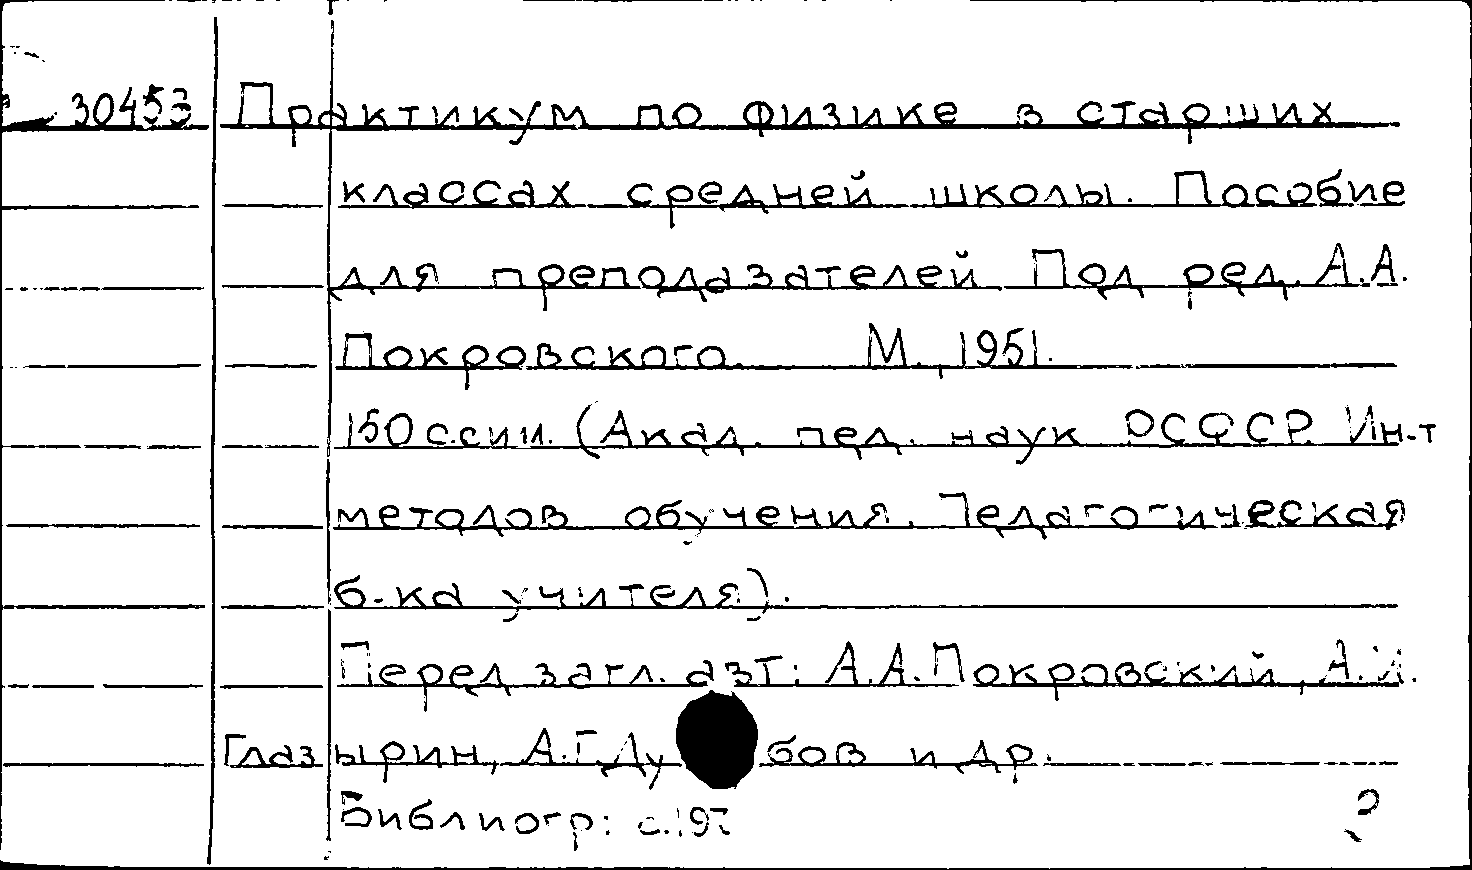 30453 Практикум по физике в старших
классах средней школы. Пособие
для преподавателей Под ред. А.А.
Покровского. М., 1951.
150 с.с илл. (Акад. пед. наук РСФСР. Ин-т
методов обучения. Педагогическая
б-ка учителя).
Перед загл. авт: А.А.Покровский, А.И.
Глазырин, А.Г.Ду бов и др.
Библиогр: с.